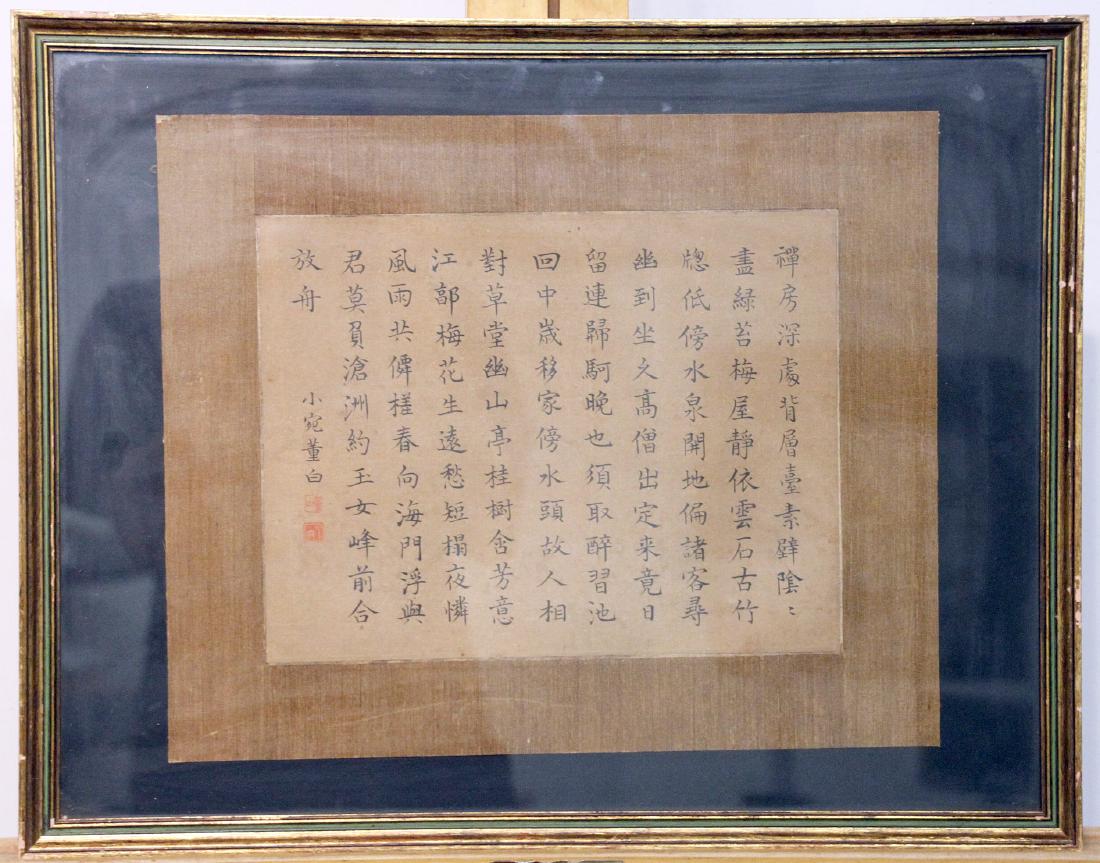 禪房深處背層臺素壁陰〻
盡綠苔梅屋靜依雲石古竹
牕低傍水泉開地偏諸客尋
幽到坐久高僧出定来竟日
留連歸騎晚也須取醉習池
回中歲移家傍水頭故人相
對草堂幽山亭桂樹含芳意
江郭梅花生遠愁短榻夜憐
風雨共僲槎春向海門浮與
君莫負滄洲約玉女峰前合
放舟
小宛董白